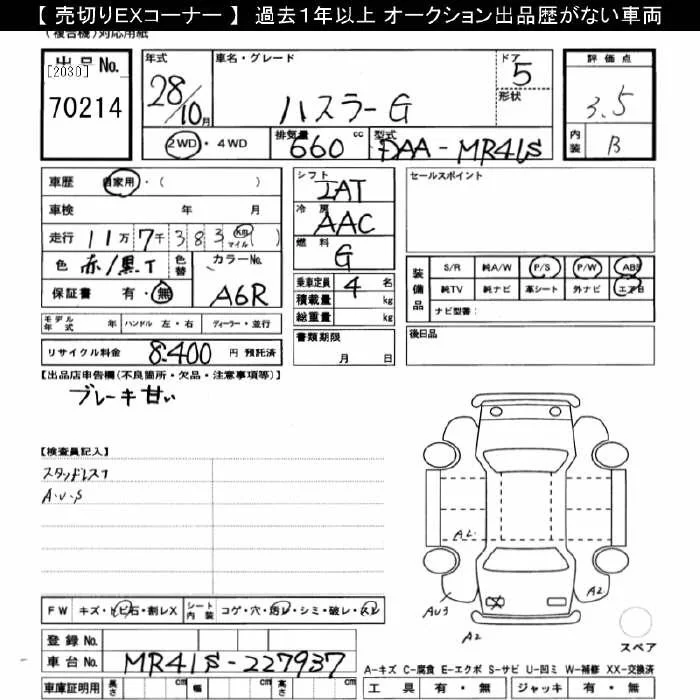 【 売切りEXコーナー 】 過去1年以上 オークション出品歴がない車両
(複合機)対応用紙
出品No.
[2030]
70214
年式
28/10月
車名・グレード
ハスラーG
ドア
5
形状
評価点
3.5
内装
B
2WD・4WD
排気量
660 cc
型式
DAA-MR41S
車歴 自家用・( )
車検 年 月
走行 11万7千383 km マイル ( )
色 赤/黒T 色替 カラーNo.
保証書 有・無 A6R
モデル年式 年 ハンドル 左・右 ディーラー・並行
リサイクル料金 8,400 円 預託済
シフト
IAT
冷房
AAC
燃料
G
乗車定員 4 名
積載量 kg
総重量 kg
書類期限
月 日
セールスポイント
装備品
S/R 純A/W P/S P/W ABS
純TV 純ナビ 革シート 外ナビ エアB
ナビ型番:
後日品
【出品店申告欄(不良箇所・欠品・注意事項等)】
ブレーキ甘い
【検査員記入】
スタッドレス1
A・U・S
AL
AU3
A2
A2
スペア
FW キズ・ヒビ石・割レX シート内装 コゲ・穴・汚レ・シミ・破レ・スレ
登録No.
車台No. MR41S-227937
車庫証明用 長さ cm 幅 cm 高さ cm
A-キズ C-腐食 E-エクボ S-サビ U-凹ミ W-補修 XX-交換済
工具 有・無 ジャッキ 有・無